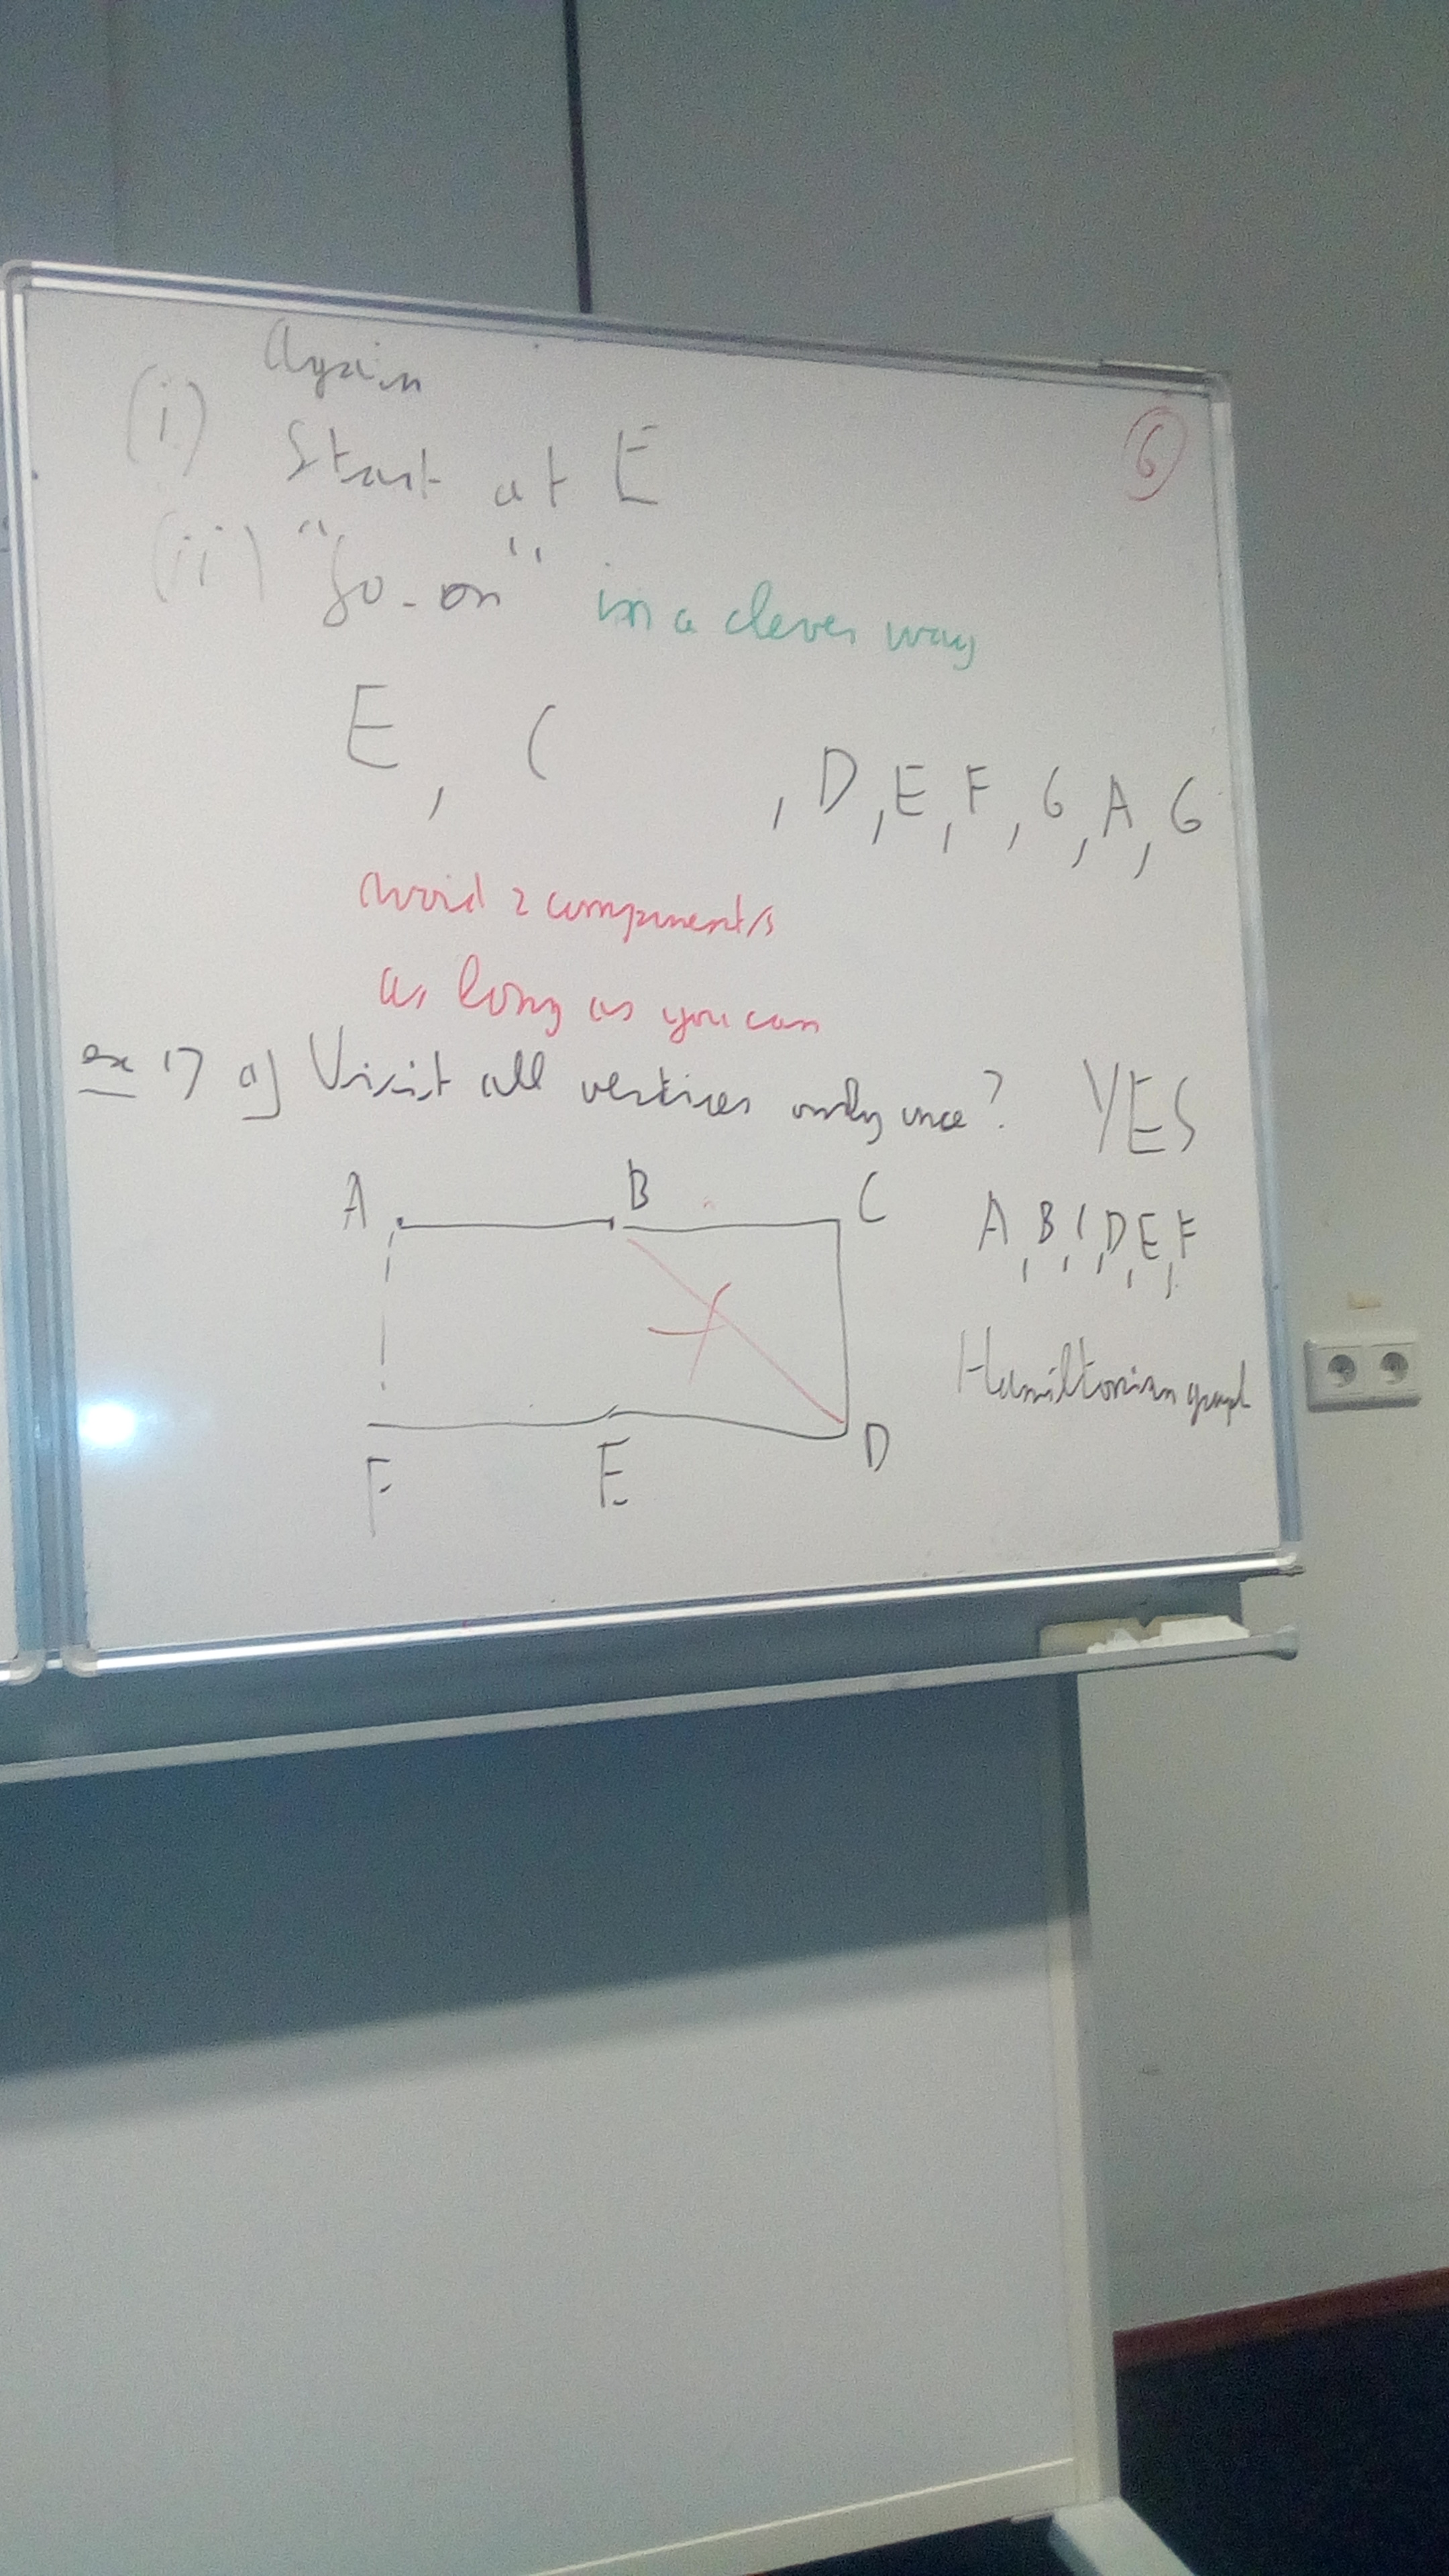 Again
(i) Start at E
6
(ii) "Go-on" in a clever way
E, C , D, E, F, G, A, G
Avoid 2 components
as long as you can
ex 17 a) Visit all vertices only once? YES
A B C
A, B, C, D, E, F
Hamiltonian graph
F E D